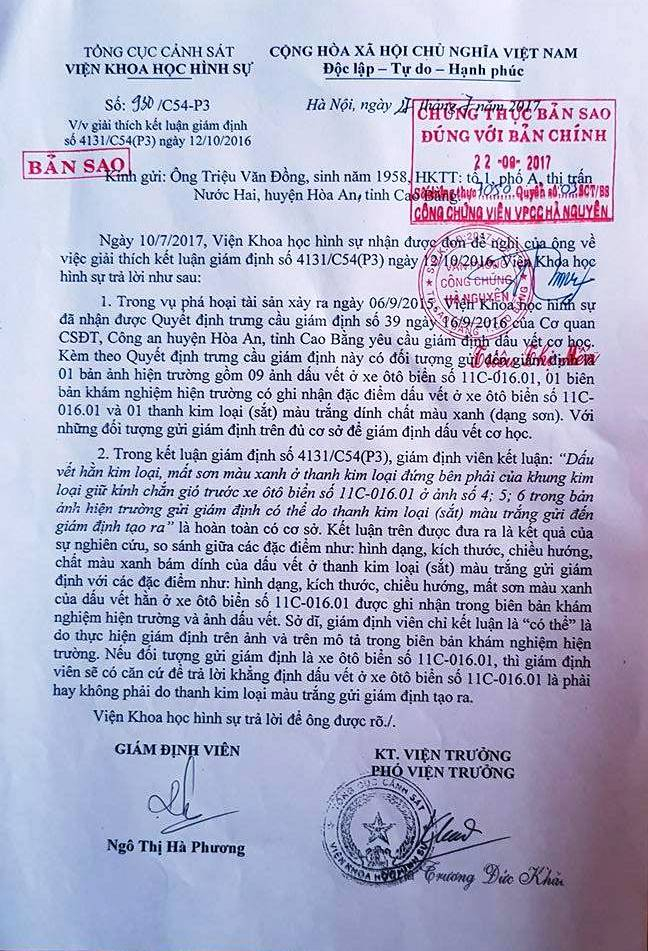 TỔNG CỤC CẢNH SÁT
VIỆN KHOA HỌC HÌNH SỰ
CỘNG HÒA XÃ HỘI CHỦ NGHĨA VIỆT NAM
Độc lập – Tự do – Hạnh phúc
Số: 930 /C54-P3
Hà Nội, ngày tháng 7 năm 2017
V/v giải thích kết luận giám định
số 4131/C54(P3) ngày 12/10/2016
BẢN SAO
CHỨNG THỰC BẢN SAO
ĐÚNG VỚI BẢN CHÍNH
22-09-2017
Số chứng thực 1050 Quyển số: 03 SCT/BS
CÔNG CHỨNG VIÊN VPCC HÀ NGUYÊN
Kính gửi: Ông Triệu Văn Đồng, sinh năm 1958, HKTT: tổ 1, phố A, thị trấn
Nước Hai, huyện Hòa An, tỉnh Cao Bằng.
Ngày 10/7/2017, Viện Khoa học hình sự nhận được đơn đề nghị của ông về
việc giải thích kết luận giám định số 4131/C54(P3) ngày 12/10/2016. Viện Khoa học
hình sự trả lời như sau:
VĂN PHÒNG
CÔNG CHỨNG
HÀ NGUYÊN
1. Trong vụ phá hoại tài sản xảy ra ngày 06/9/2015. Viện Khoa học hình sự
đã nhận được Quyết định trưng cầu giám định số 39 ngày 16/9/2016 của Cơ quan
CSĐT, Công an huyện Hòa An, tỉnh Cao Bằng yêu cầu giám định dấu vết cơ học.
Kèm theo Quyết định trưng cầu giám định này có đối tượng gửi đến giám định là
01 bản ảnh hiện trường gồm 09 ảnh dấu vết ở xe ôtô biển số 11C-016.01, 01 biên
bản khám nghiệm hiện trường có ghi nhận đặc điểm dấu vết ở xe ôtô biển số 11C-
016.01 và 01 thanh kim loại (sắt) màu trắng dính chất màu xanh (dạng sơn). Với
những đối tượng gửi giám định trên đủ cơ sở để giám định dấu vết cơ học.
2. Trong kết luận giám định số 4131/C54(P3), giám định viên kết luận: “Dấu
vết hằn kim loại, mất sơn màu xanh ở thanh kim loại đứng bên phải của khung kim
loại giữ kính chắn gió trước xe ôtô biển số 11C-016.01 ở ảnh số 4; 5; 6 trong bản
ảnh hiện trường gửi giám định có thể do thanh kim loại (sắt) màu trắng gửi đến
giám định tạo ra” là hoàn toàn có cơ sở. Kết luận trên được đưa ra là kết quả của
sự nghiên cứu, so sánh giữa các đặc điểm như: hình dạng, kích thước, chiều hướng,
chất màu xanh bám dính của dấu vết ở thanh kim loại (sắt) màu trắng gửi giám
định với các đặc điểm như: hình dạng, kích thước, chiều hướng, mất sơn màu xanh
của dấu vết hằn ở xe ôtô biển số 11C-016.01 được ghi nhận trong biên bản khám
nghiệm hiện trường và ảnh dấu vết. Sở dĩ, giám định viên chỉ kết luận là “có thể” là
do thực hiện giám định trên ảnh và trên mô tả trong biên bản khám nghiệm hiện
trường. Nếu đối tượng gửi giám định là xe ôtô biển số 11C-016.01, thì giám định
viên sẽ có căn cứ để trả lời khẳng định dấu vết ở xe ôtô biển số 11C-016.01 là phải
hay không phải do thanh kim loại màu trắng gửi giám định tạo ra.
Viện Khoa học hình sự trả lời để ông được rõ./.
GIÁM ĐỊNH VIÊN
KT. VIỆN TRƯỞNG
PHÓ VIỆN TRƯỞNG
TỔNG CỤC CẢNH SÁT
VIỆN KHOA HỌC HÌNH SỰ
Ngô Thị Hà Phương
Trương Đức Khải